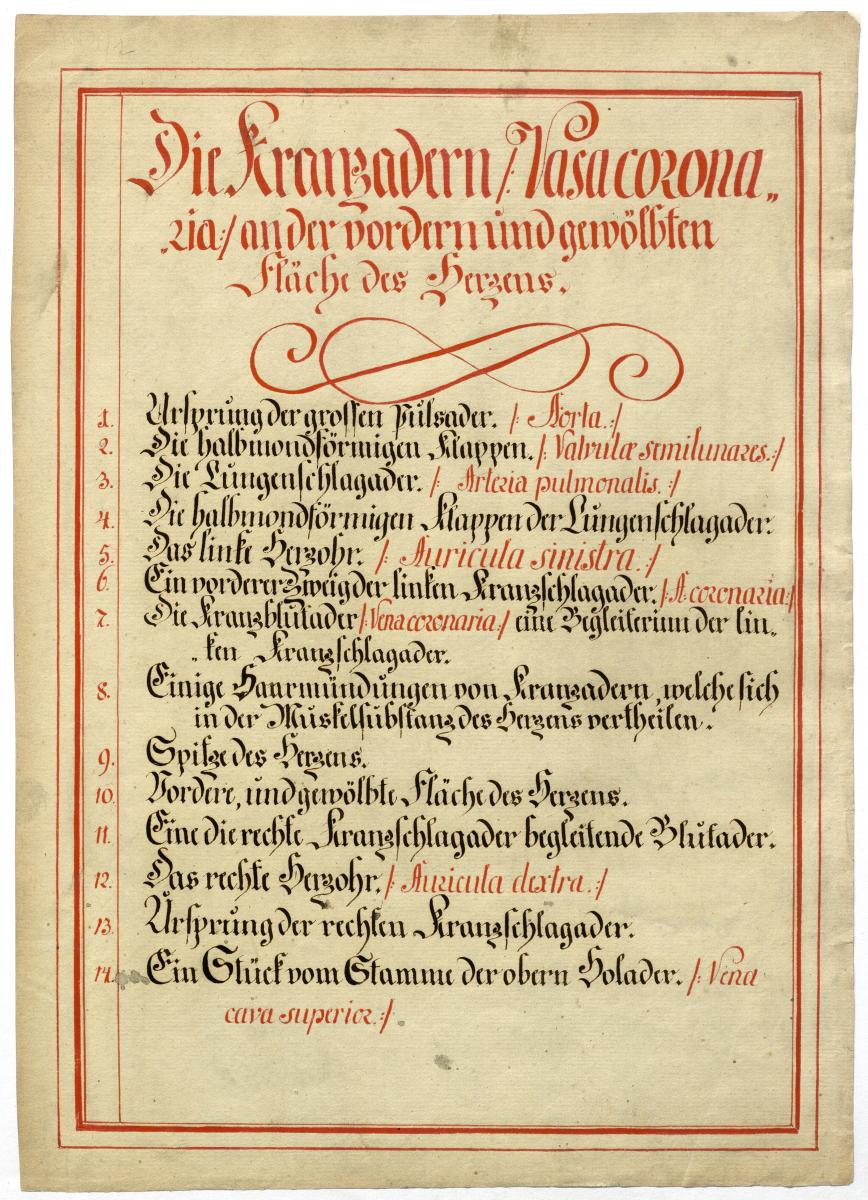 Die Kranzadern /: Vasa corona„
„ria :/ an der vordern und gewölbten
Fläche des Herzens.
1. Ursprung der grossen Pulsader. /: Aorta. :/
2. Die halbmondförmigen Klappen. /: Valvulæ semilunares. :/
3. Die Lungenschlagader. /: Arteria pulmonalis. :/
4. Die halbmondförmigen Klappen der Lungenschlagader.
5. Das linke Herzohr. /: Auricula sinistra. :/
6. Ein vorderer Zweig der linken Kranzschlagader. /: A. coronaria :/
7. Die Kranzblutader /: Vena coronaria :/ eine Begleiterinn der lin„
„ken Kranzschlagader.
8. Einige Haarmündungen von Kranzadern, welche sich
in der Muskelsubstanz des Herzens vertheilen.
9. Spitze des Herzens.
10. Vordere, und gewölbte Fläche des Herzens.
11. Eine die rechte Kranzschlagader begleitende Blutader.
12. Das rechte Herzohr. /: Auricula dextra. :/
13. Ursprung der rechten Kranzschlagader.
14. Ein Stück vom Stamme der obern Holader. /: Vena
cava superior. :/